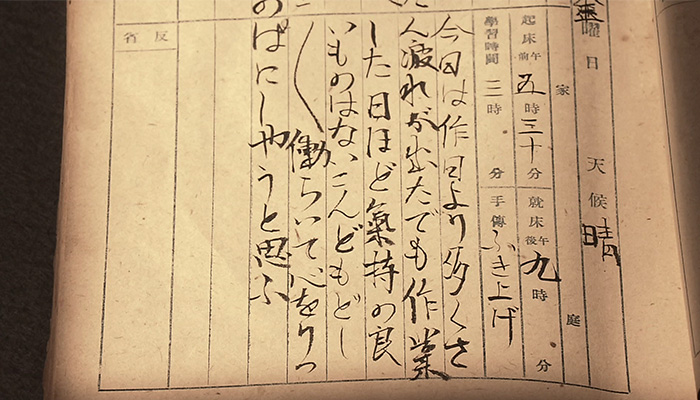 金曜日 天候 晴
家庭
起床 午前 五時三十分 就床 午後 九時 分
學習時間 三時 分 手傳 ふき上げ
今日は作日より多くさ
ん疲れが出たでも作業
した日ほど氣持の良
いものはないこんどもどし
〱働らいて心をりっ
ぱにしやうと思ふ
反省